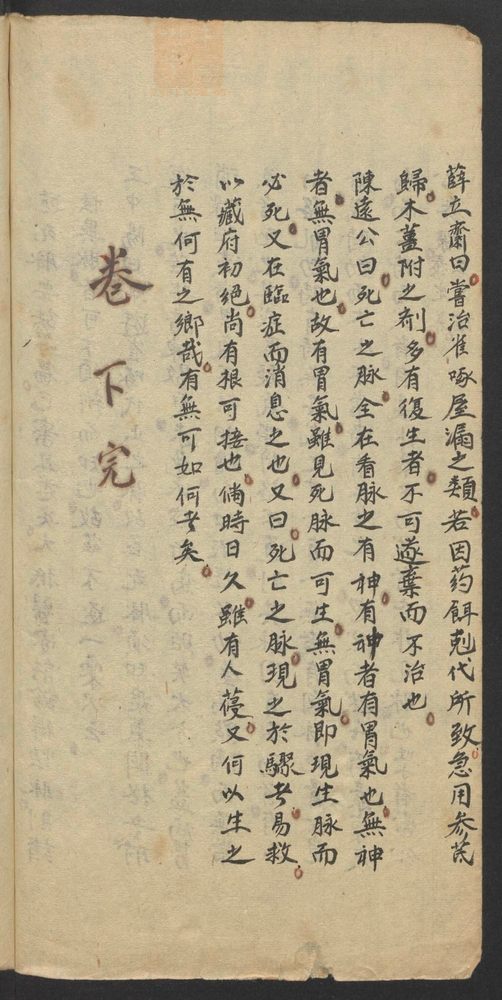 薛立齋曰嘗治雀啄屋漏之類若因药餌剋代所致急用参芪
歸木薑附之剤多有復生者不可遂棄而不治也
陳遠公曰死亡之脉全在看脉之有神有神者有胃氣也無神
者無胃氣也故有胃氣雖見死脉而可生無胃氣即現生脉而
必死又在臨症而消息之也又曰死亡之脉現之於驟者易救
以藏府初絕尚有根可接也倘時日久雖有人葠又何以生之
於無何有之鄉哉有無可如何者矣
卷下完